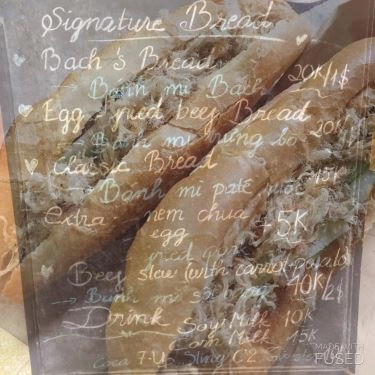 Signature Bread
Bach's Bread
→ Bánh mì Bach 20K/1$
Egg - fried beef Bread
→ Bánh mì trứng bò 20K
Classic Bread
→ Bánh mì patê ruốc 15K
Extra - nem chua
egg + 5K
Beef slaw (with carrot-potato)
→ Bánh mì 40K/2$
Drink Soy Milk 10K
Corn Milk 15K
Coca 7-Up Sting C2
MADE WITH
FUSED